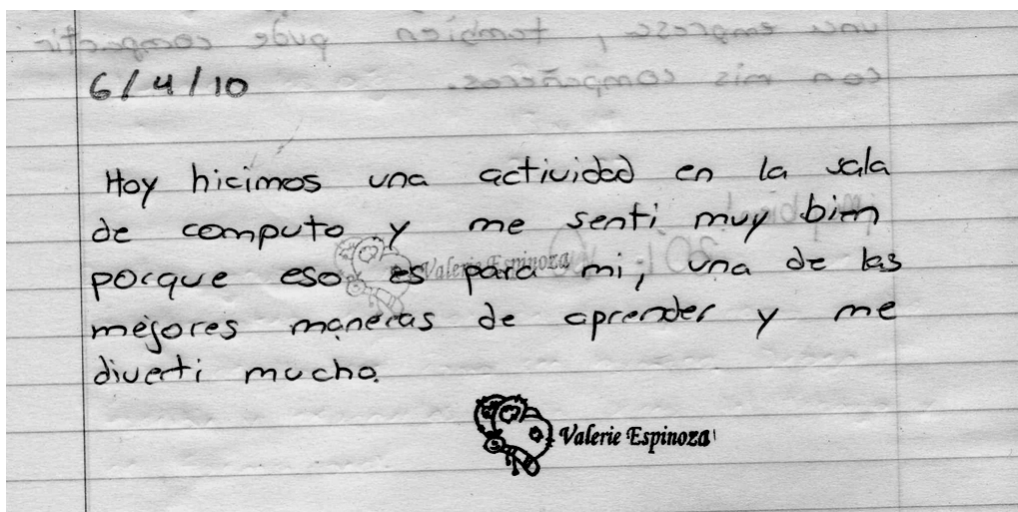 6/4/10
Hoy hicimos una actividad en la sala
de computo y me senti muy bien
porque eso es para mi, una de las
mejores maneras de aprender y me
diverti mucho.
Valerie Espinoza
Valerie Espinoza